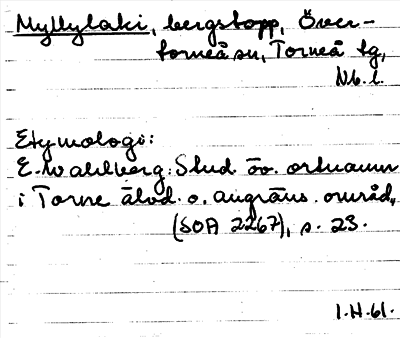 Myllylaki, bergstopp, Över-
torneå sn, Torneå tg,
Nb. l.
Etymologi:
E. Wahlberg: Stud. öv. ortnamn
i Torne älvd. o. angräns. områd,
(SOA 2267), s. 23.
I.H.61.